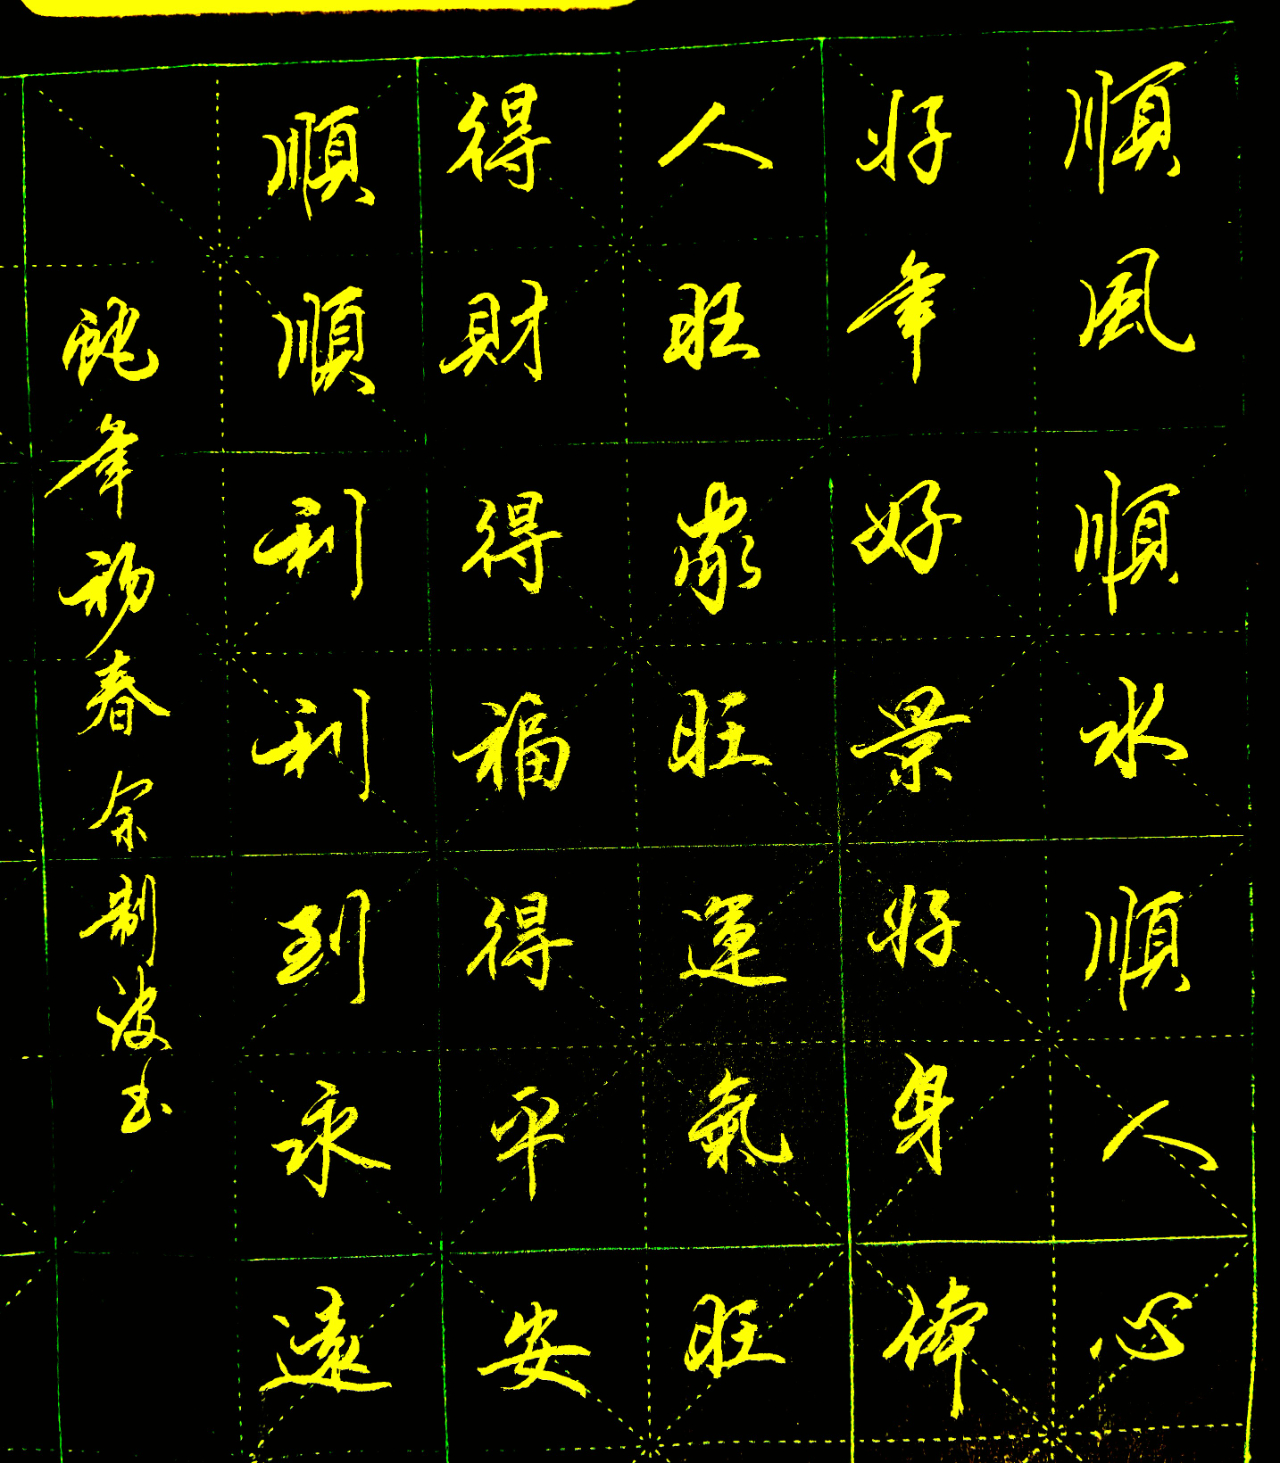 順風順水順人心
好年好景好身体
人旺家旺運氣旺
得財得福得平安
順順利利到永遠
蛇年初春余制波书